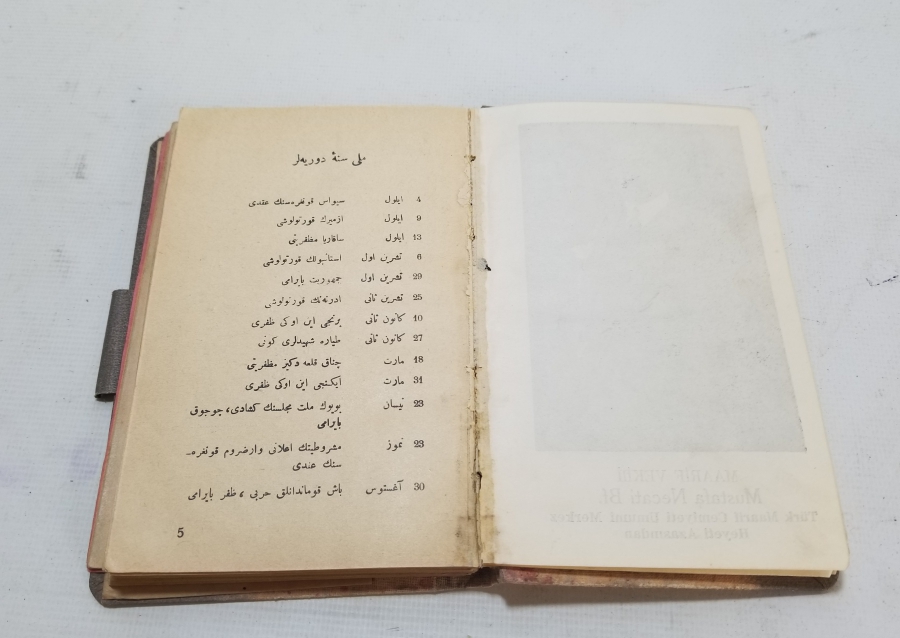 ملی سنهٔ دوریه‌لر
4 ایلول سیواس قونغره‌سنك عقدی
9 ایلول ازمیرك قورتولوشی
13 ایلول ساقاریا مظفریتی
6 تشرین اول استانبولك قورتولوشی
29 تشرین اول جمهوریت بایرامی
25 تشرین ثانی ادرنه‌نك قورتولوشی
10 كانون ثانی برنجی این اوكی ظفری
27 كانون ثانی طیاره شهیدلری كونی
18 مارت چناق قلعه دكیز مظفریتی
31 مارت ایكنجی این اوكی ظفری
23 نیسان بویوك ملت مجلسنك كشادی، چوجوق
بایرامی
23 تموز مشروطیتك اعلانی وارضروم قونغره‌ـ
سنك عقدی
30 آغستوس باش قوماندانلق حربی، ظفر بایرامی
5
MAARİF VEKİLİ
Mustafa Necati Bf.
Türk Maarif Cemiyeti Umumî Merkez
Heyeti Azasından